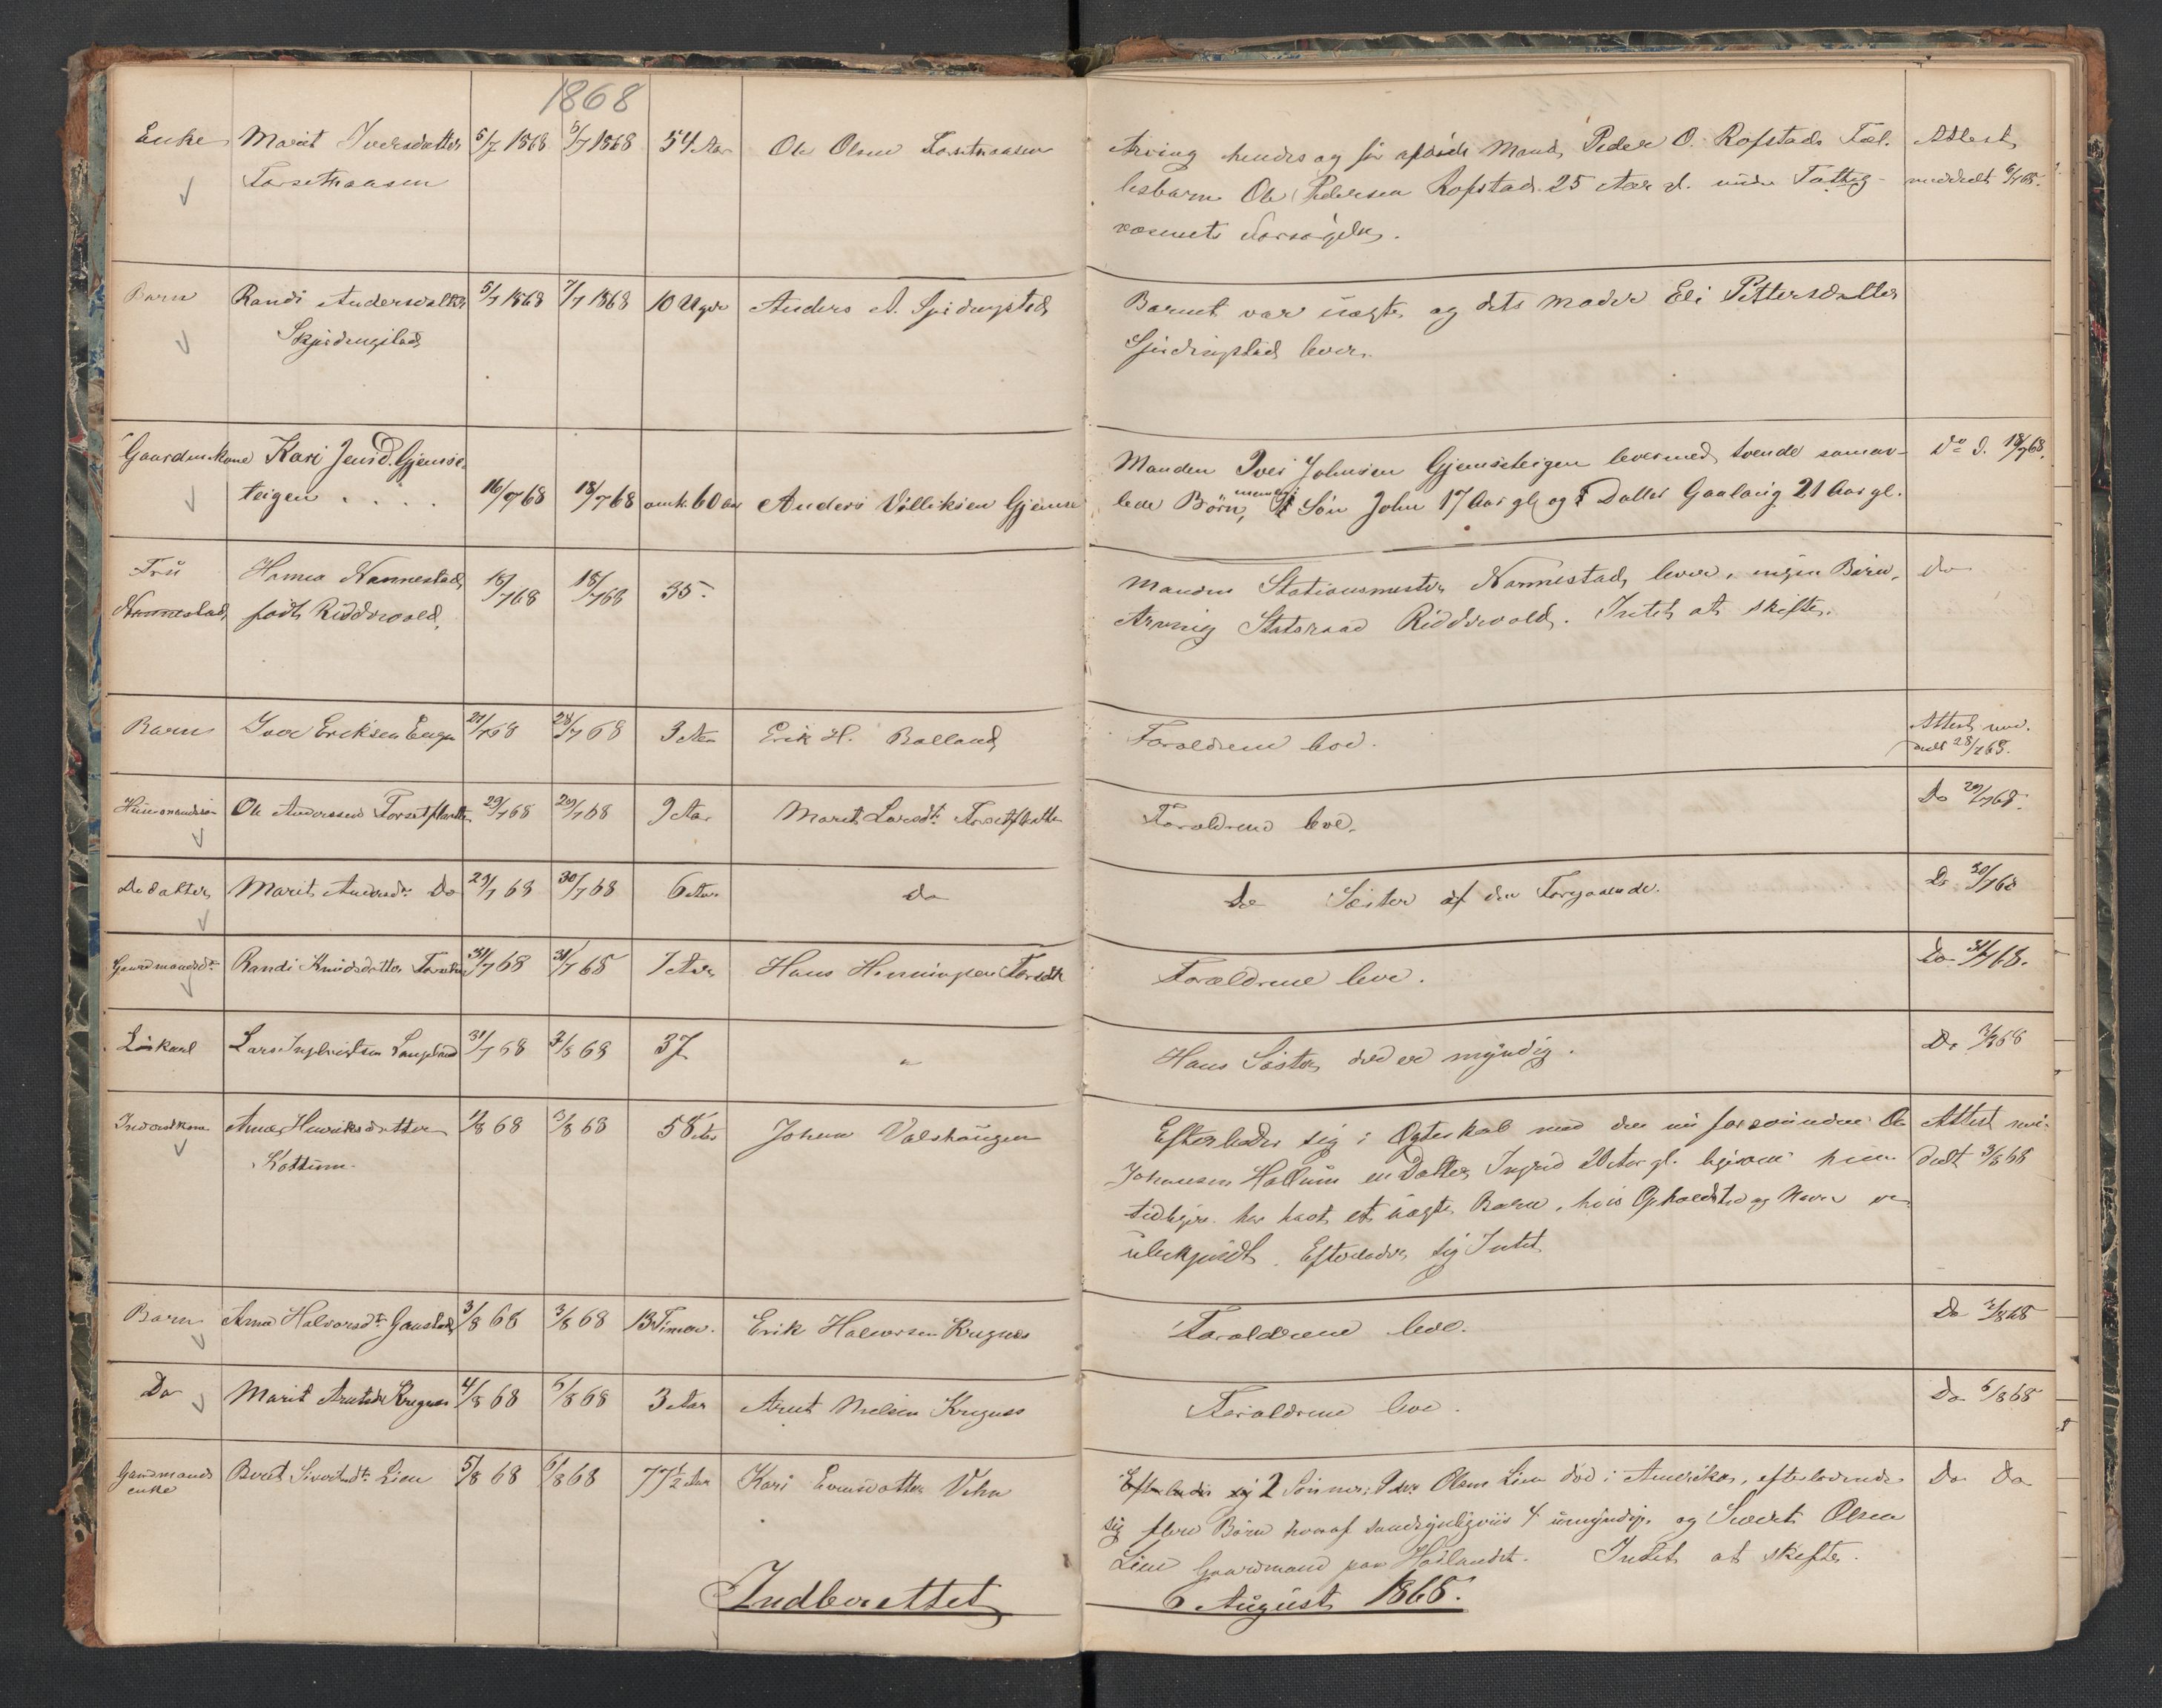 1868
Enke Marit Iversdatter 5/7 1868 5/7 1868 54 Aar Ole Olsen
Arving hendes og før afdøde Mand Peder O. Rofstads Fæl- Attest
lesbarn Ole Pedersen Rofstad 25 Aar gl. under Fattig- meddelt 6/7 68.
væsenets Forsørgelse.
Barn Randi Andersdatter 5/7 1868 7/7 1868 10 Uger Anders A. Spjedingstad
Skjedingstad
Barnet var uægte og dets Moder Eli Pettersdatter
Spjedingstad lever.
Gaardm.kone Kari Jensd. Gjemse-
teigen . . . . 16/7 68 18/7 68 omk. 60 Aar Anders Villiksen Gjemse
Manden Iver Johnsen Gjemseteigen lever med tvende sammav- Do D. 18/7 68.
lede Børn, nemlig Søn John 17 Aar gl. og Datter Gaalaug 21 Aar gl.
Fru Hanna Nannestad 18/7 68 18/7 68 35.
Nannestad født Riddervold.
Manden Stationsmester Nannestad lever, ingen Børn, do
Arving Statsraad Riddervold. Intet at skifte.
Barn Iver Eriksen Engen 27/7 68 28/7 68 3 Aar Erik H. Bolland
Forældrene leve. Attest med-
delt 28/7 68.
Husmandssøn Ole Andersen Forsetpladsen 29/7 68 29/7 68 9 Aar Marit Larsdt.
Forældrene leve. Do 29/7 68.
Do datter Marit Andersdt. Do 29/7 68 30/7 68 6 Aar do
Do Søster af den Forgaaende. Do 30/7 68
Gaardmandsdt. Randi Knudsdatter 31/7 68 31/7 68 7 Aar Hans Henningsen Forseth
Forældrene leve. Do 31/7 68.
Løskarl Lars Ingebrigtsen Langeland 31/7 68 3/8 68 37 "
Hans Søster der er myndig. Do 3/8 68
Inderstkone Anne Henriksdatter 1/8 68 3/8 68 58 Aar Johan Valshaugen
Kottum.
Efterlader sig i Ægteskab med den nu forsvundne Ole Attest med-
Johansen Hallum en Datter Ingrid 20 Aar gl. ligesom hun delt 3/8 68
tidligere har havt et uægte Barn, hvis Opholdsted og Navn er
ubekjendt. Efterlader sig Intet
Barn Anne Halvorsdt. Gaustad 3/8 68 3/8 68 13 Timer. Erik Halvorsen Krugnes
Forældrene leve. Do 3/8 68
Do Marit Arntsdt. Krugnes 4/8 68 5/8 68 3 Aar Arnt Nielsen Krugnes
Forældrene leve. Do 5/8 68
Gaardmands Beret Sivertsdt. Lien 5/8 68 6/8 68 77 1/2 Aar Kari Evensdatter Vehn
enke
Efterlader sig 2 Sønner: Peder Olsen Lien død i Amerika, efterladende Do Do
sig flere Børn hvoraf sandsynligviis 4 umyndige og Sivert Olsen
Lien Gaardmand paa Hølandet. Intet at skifte.
Indberettet 6 August 1868.